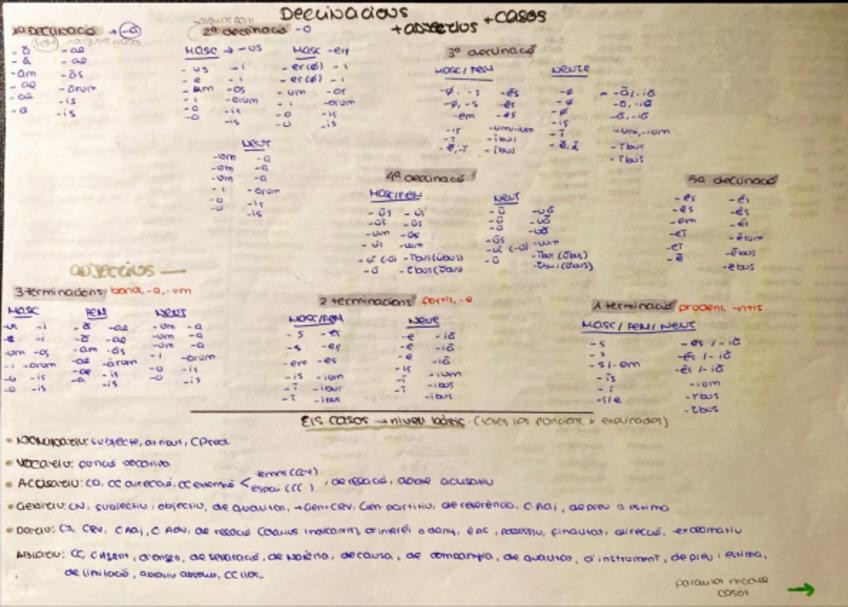 DECLINACIONS
+ ADJECTIUS + CASOS
1a DECLINACIÓ → -a
-ă -ae
-ă -ae
-am -ās
-ae -ārum
-ae -is
-a -is
2a declinació -o
MASC → -us
-us -i
-e -i
-um -os
-i -orum
-o -is
-o -is
MASC -er
-er(ø) -i
-er(ø) -i
-um -os
-i -orum
-o -is
-o -is
NEUT
-um -a
-um -a
-um -a
-i -orum
-o -is
-o -is
3a declinació
MASC/FEM
-ø, -s -ēs
-ø, -s -ēs
-em -ēs
-is -um/-ium
-ī -ibus
-ĕ, -ī -ibus
NEUTRE
-ø -ă/-iă
-ø -ă, -iă
-ø -ă, -iă
-is -um, -ium
-ī -ibus
-ĕ, ī -ibus
4a declinació
MASC/FEM
-ŭs -ūs
-ŭs -ūs
-um -ūs
-ūs -uum
-uī (-ū) -ibus (ŭbus)
-ū -ibus (ŭbus)
NEUT
-ū -uă
-ū -uă
-ū -uă
-ūs -uum
-uī (-ū) -ibus (ŭbus)
-ū -ibus (ŭbus)
5a declinació
-ēs -ēs
-ēs -ēs
-em -ēs
-eī -ērum
-eī -ēbus
-ē -ēbus
ADJECTIUS
3 terminacions bonus, -a, -um
MASC
-us -i
-e -i
-um -os
-i -orum
-o -is
-o -is
FEM
-ă -ae
-ă -ae
-am -ās
-ae -ārum
-ae -is
-a -is
NEUT
-um -a
-um -a
-um -a
-i -orum
-o -is
-o -is
2 terminacions fortis, -e
MASC/FEM
-s -es
-s -es
-em -es
-is -ium
-ī -ibus
-ī -ibus
NEUT
-e -iă
-e -iă
-e -iă
-is -ium
-ī -ibus
-ī -ibus
1 terminació prudens, -ntis
MASC/FEM/NEUT
-s -ēs / -iă
-s -ēs / -iă
-s/-em -ēs / -iă
-is -ium
-ī -ibus
-ī/e -ibus
Els casos → nivell bàsic (totes les funcions, x explicades)
• NOMINATIU: subjecte, atribut, CPred
• VOCATIU: funció vocativa
• ACUSATIU: CD, CC direcció, CC extensió < temps (CCT) espai (CCL), de relació, doble acusatiu
• GENITIU: CN, subjectiu i objectiu, de qualitat, → Gen CRV, Gen partitiu, de referència, C Adj, de preu o estima
• DATIU: CI, CRV, C Adj, C Adv, de relació, d'interès o dany, ètic, possessiu, finalitat, direcció,
ABLATIU: CC, C Agent, d'origen, de separació, de matèria, de causa, de companyia, de qualitat, d'instrument, de preu i estima,
de limitació, ablatiu absolut, CC lloc.
casos